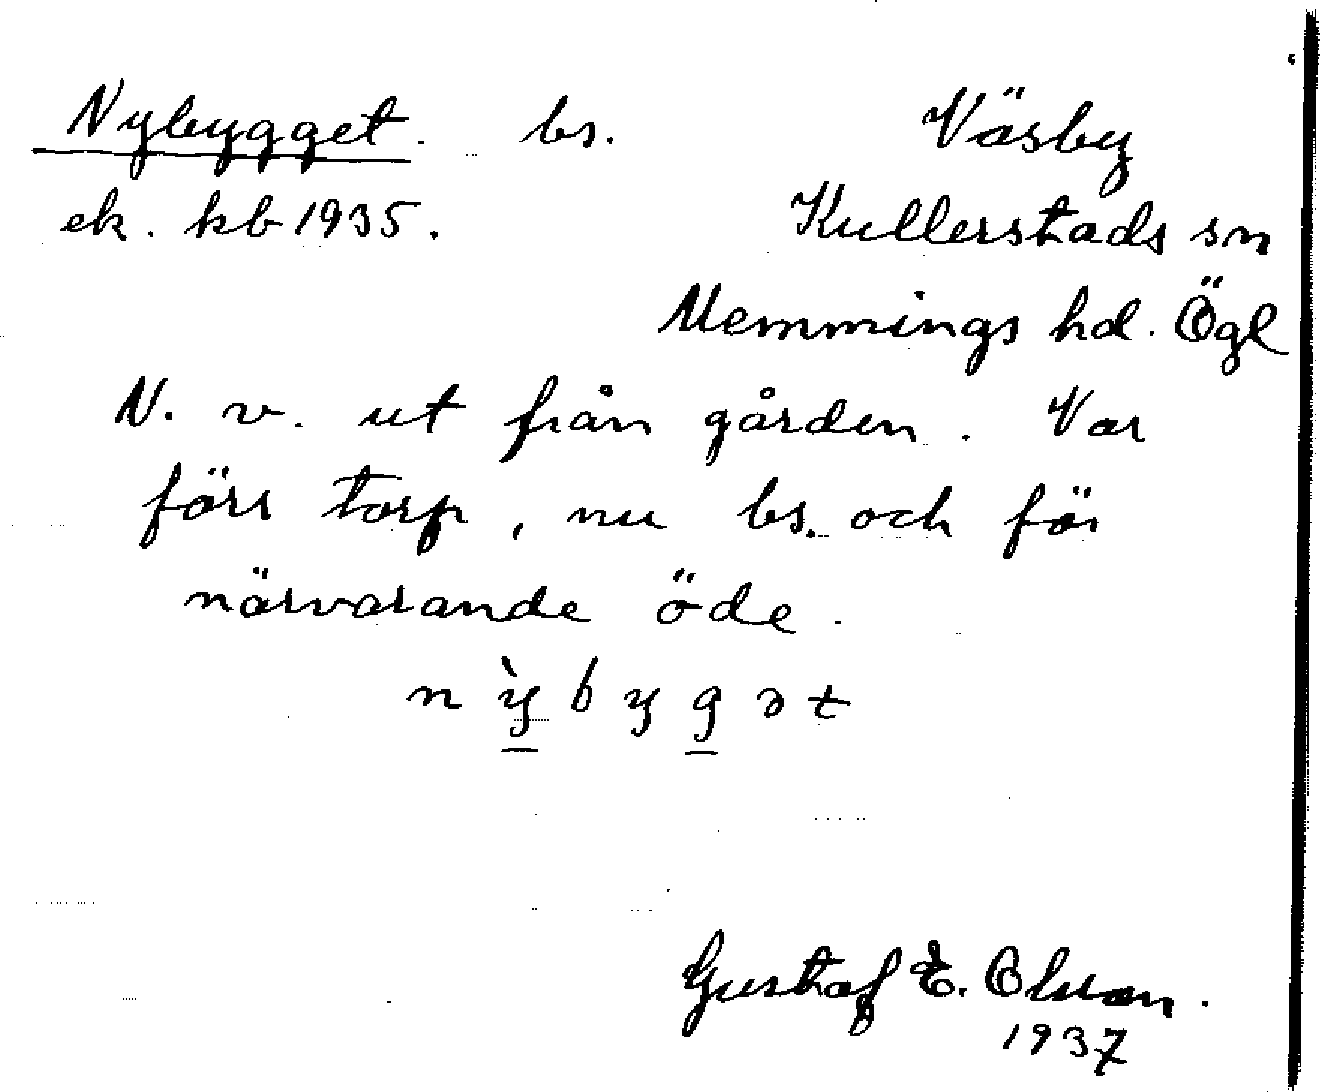 Nybygget. bs. Väsby
ek. kb 1935. Kullerstads sn
Memmings hd. Ögl
N. v. ut från gården. Var
förr torp, nu bs. och för
närvarande öde.
n ỳ̲ b y g̲ ə t
Gustaf E. Olsson.
1937